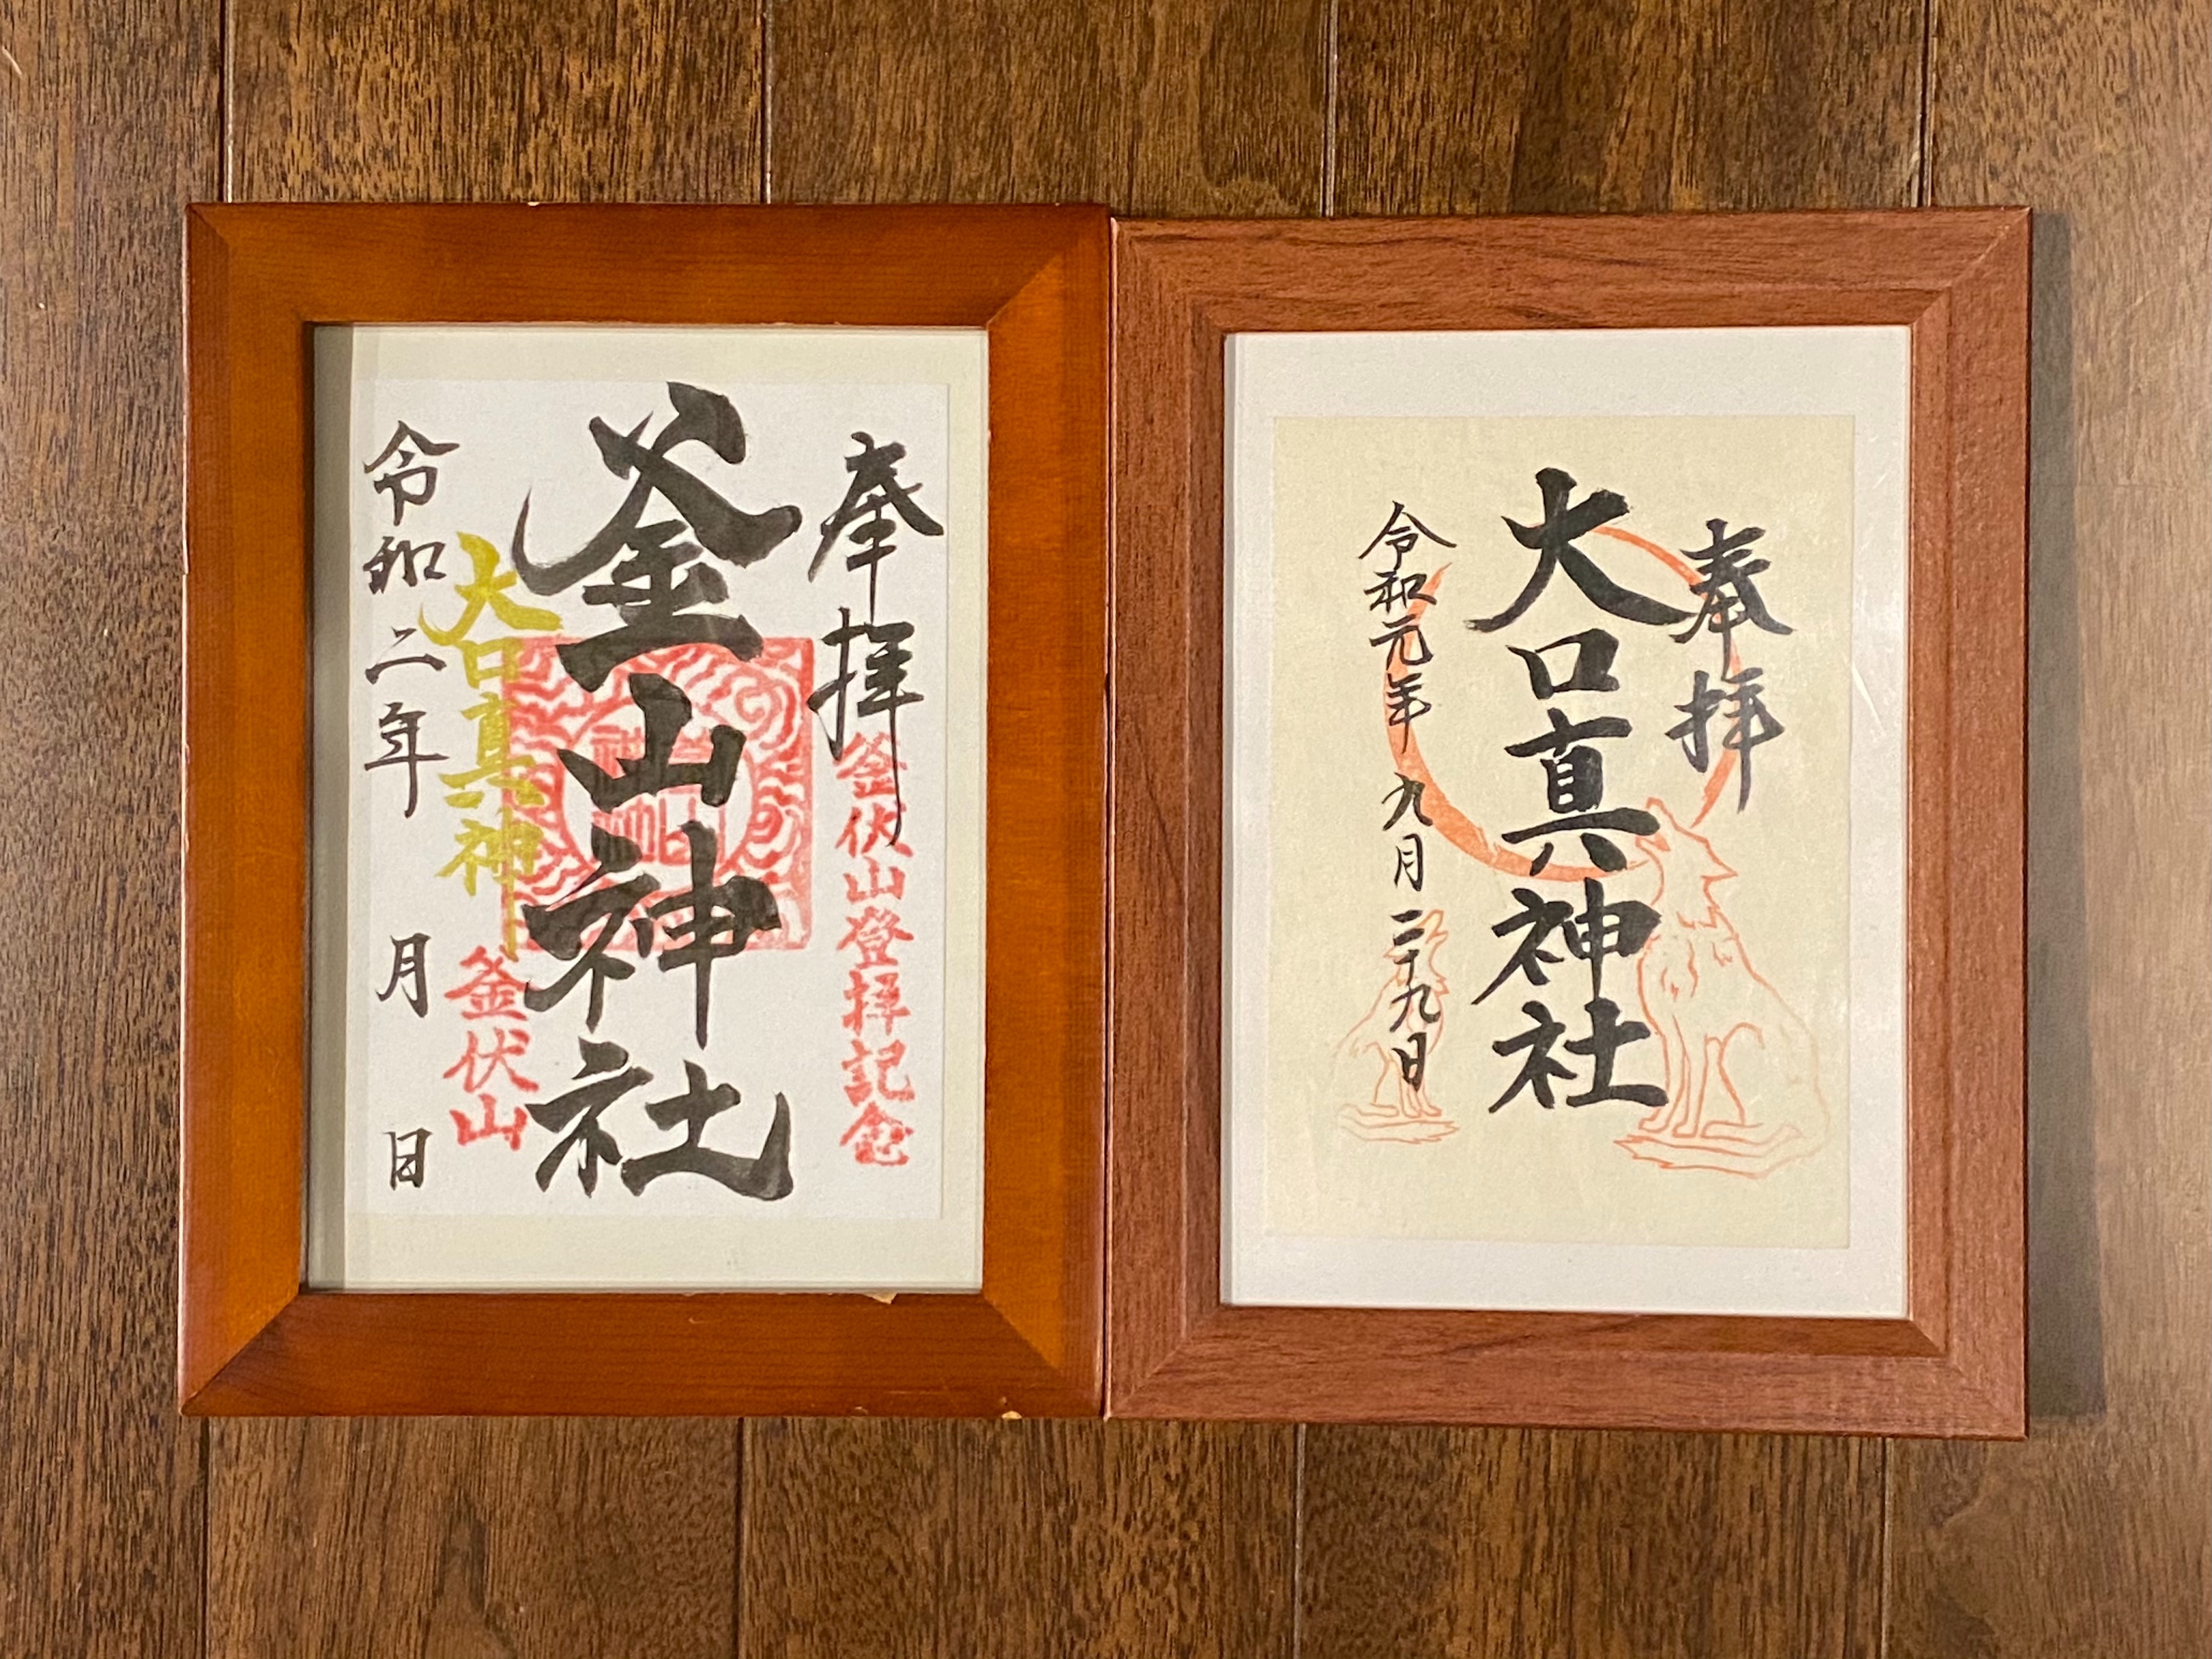 奉拝
釜伏山登拝記念
釜山神社
大口真神
釜伏山
令和二年 月 日
奉拝
大口真神社
令和元年 九月二十九日